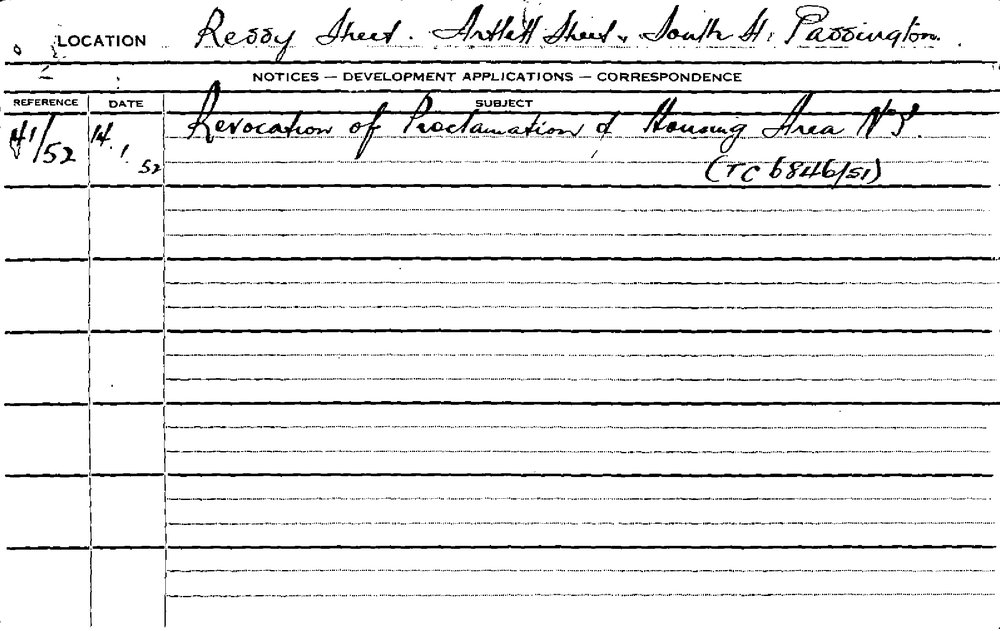 LOCATION Ressy Street. Artlett Street & South St, Paddington.
NOTICES — DEVELOPMENT APPLICATIONS — CORRESPONDENCE
REFERENCE DATE SUBJECT
41/52 14.1.52 Revocation of Proclamation of Housing Area No 3.
(TC 6846/51)